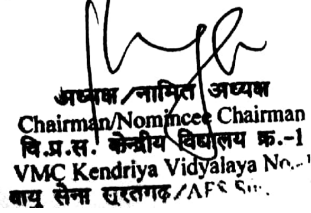 अध्यक्ष/नामित अध्यक्ष
Chairman/Nomincee Chairman
वि.प्र.स. केन्द्रीय विद्यालय क्र.-1
VMC Kendriya Vidyalaya No.-1
वायु सेना सूरतगढ़/AFS